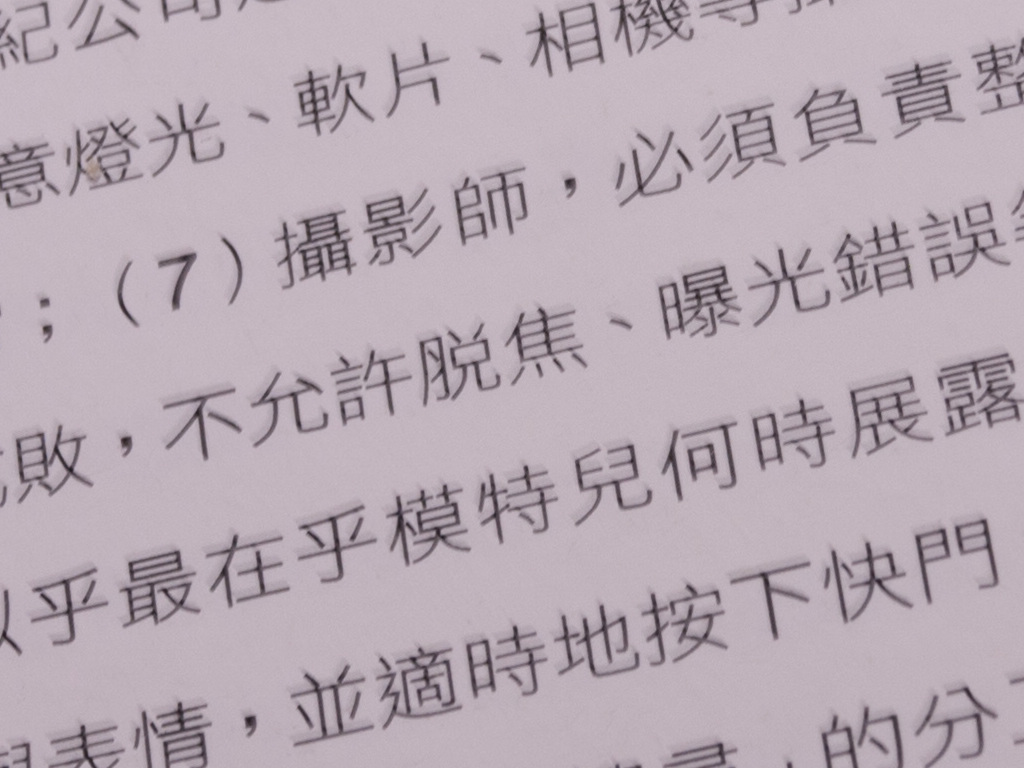 紀公司
意燈光、軟片、相機等
；（7）攝影師，必須負責整
敗，不允許脫焦、曝光錯誤
乎最在乎模特兒何時展露
表情，並適時地按下快門
的分